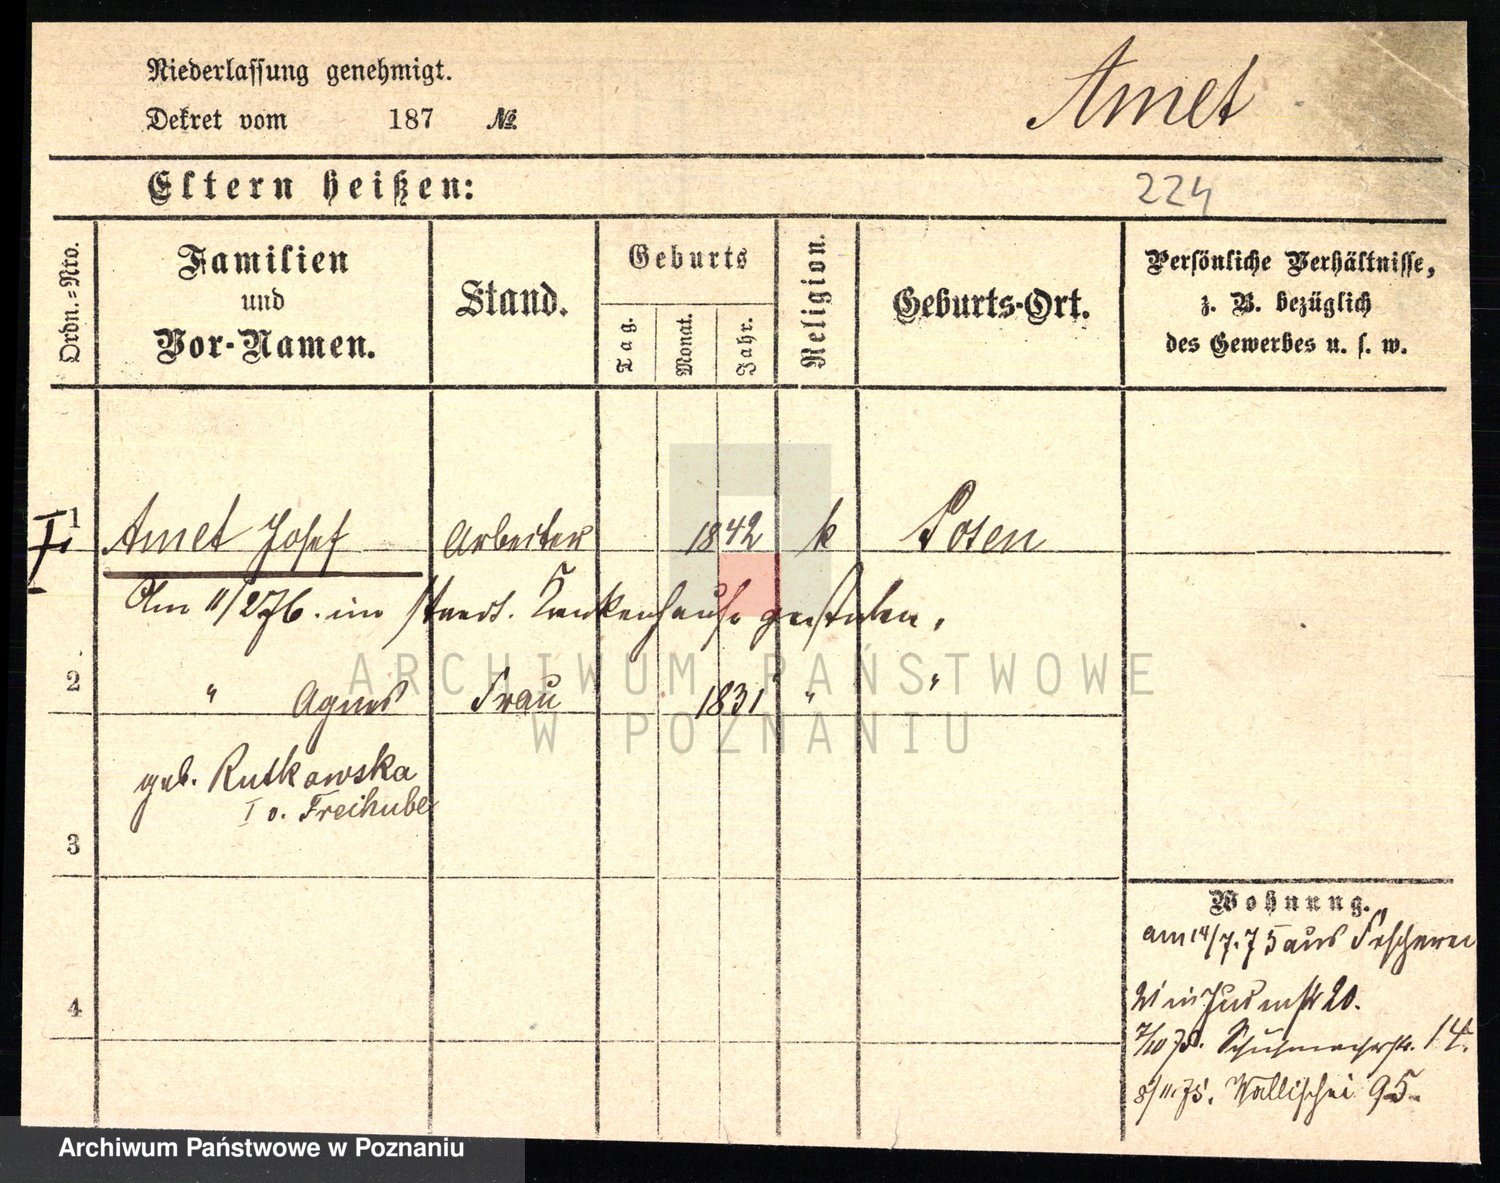 Niederlassung genehmigt.
Dekret vom 187 №
Amet
Eltern heißen:
224
Ordn.-Nro.
Familien
und
Vor-Namen.
Stand.
Geburts
Tag.
Monat.
Jahr.
Religion.
Geburts-Ort.
Persönliche Verhältnisse,
z. B. bezüglich
des Gewerbes u. s. w.
1 Amet Josef Arbeiter 1842 k Posen
Am 11/2 76. im staedt. Krankenhause gestorben.
2 " Agnes Frau 1831 " "
geb. Rutkowska
I v. Freihube
3
4
Wohnung.
am 14/7.75 aus Fischerei
20.
7/10 75. Schuhmacherstr. 14.
8/11.75. Wallischei 95.
ARCHIWUM PAŃSTWOWE
W POZNANIU
Archiwum Państwowe w Poznaniu